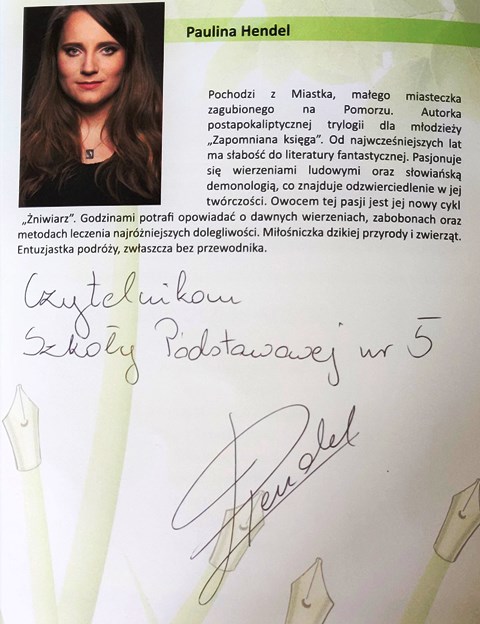 Paulina Hendel
Pochodzi z Miastka, małego miasteczka
zagubionego na Pomorzu. Autorka
postapokaliptycznej trylogii dla młodzieży
„Zapomniana księga”. Od najwcześniejszych lat
ma słabość do literatury fantastycznej. Pasjonuje
się wierzeniami ludowymi oraz słowiańską
demonologią, co znajduje odzwierciedlenie w jej
twórczości. Owocem tej pasji jest jej nowy cykl
„Żniwiarz”. Godzinami potrafi opowiadać o dawnych wierzeniach, zabobonach oraz
metodach leczenia najróżniejszych dolegliwości. Miłośniczka dzikiej przyrody i zwierząt.
Entuzjastka podróży, zwłaszcza bez przewodnika.
Czytelnikom
Szkoły Podstawowej nr 5
PHendel